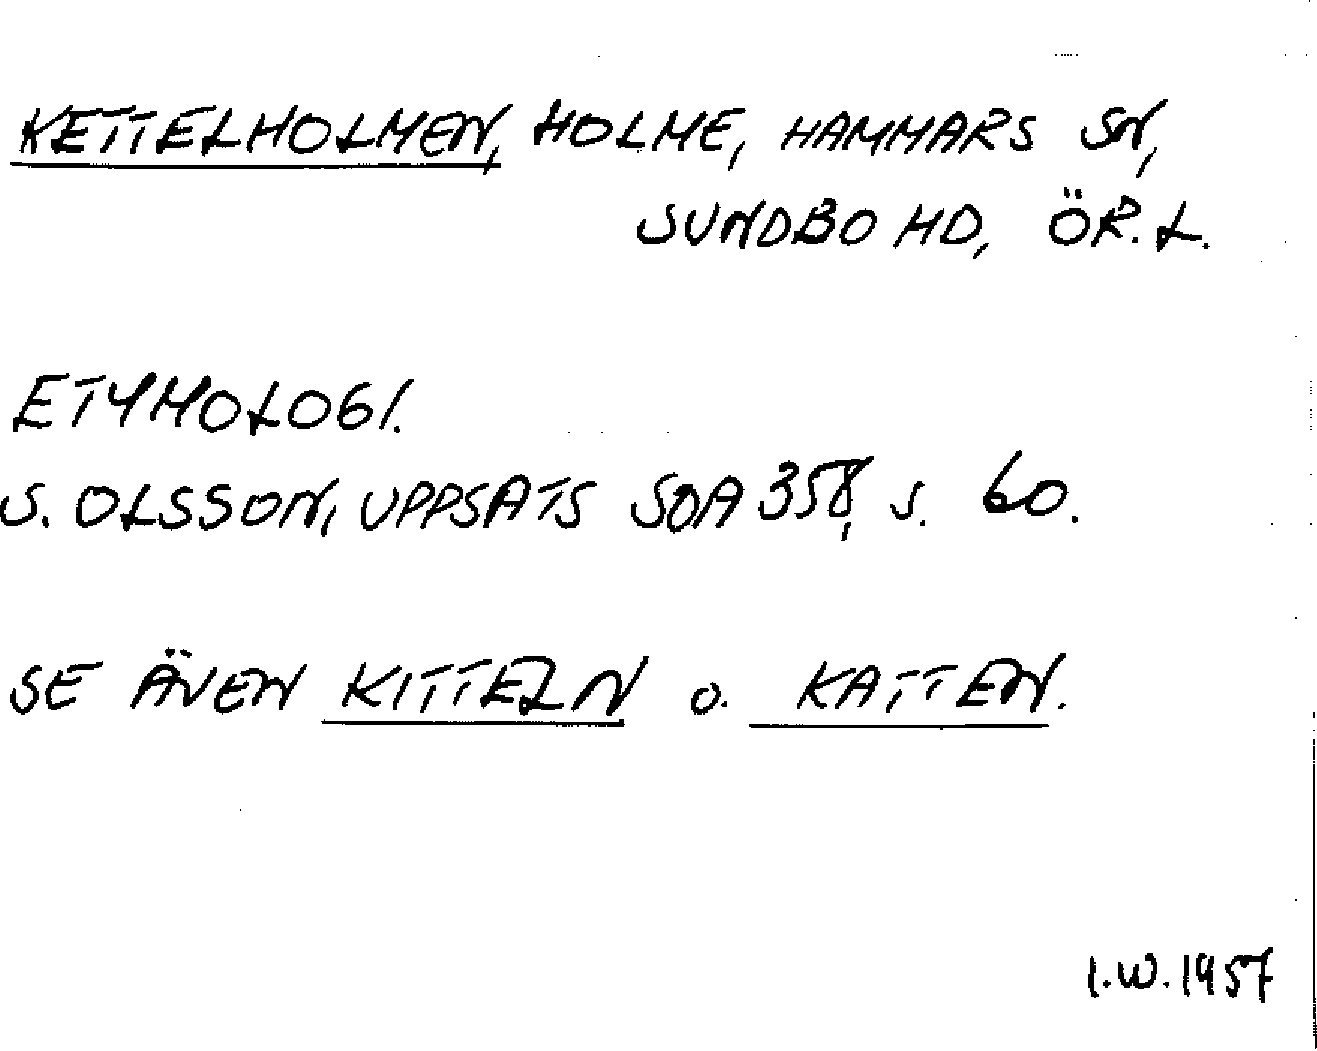 KETTELHOLMEN, HOLME, HAMMARS SN,
SUNDBO HD, ÖR. L.
ETYMOLOGI.
S. OLSSON, UPPSATS SOA 358, S. 60.
SE ÄVEN KITTELN o. KATTEN.
I.W. 1957